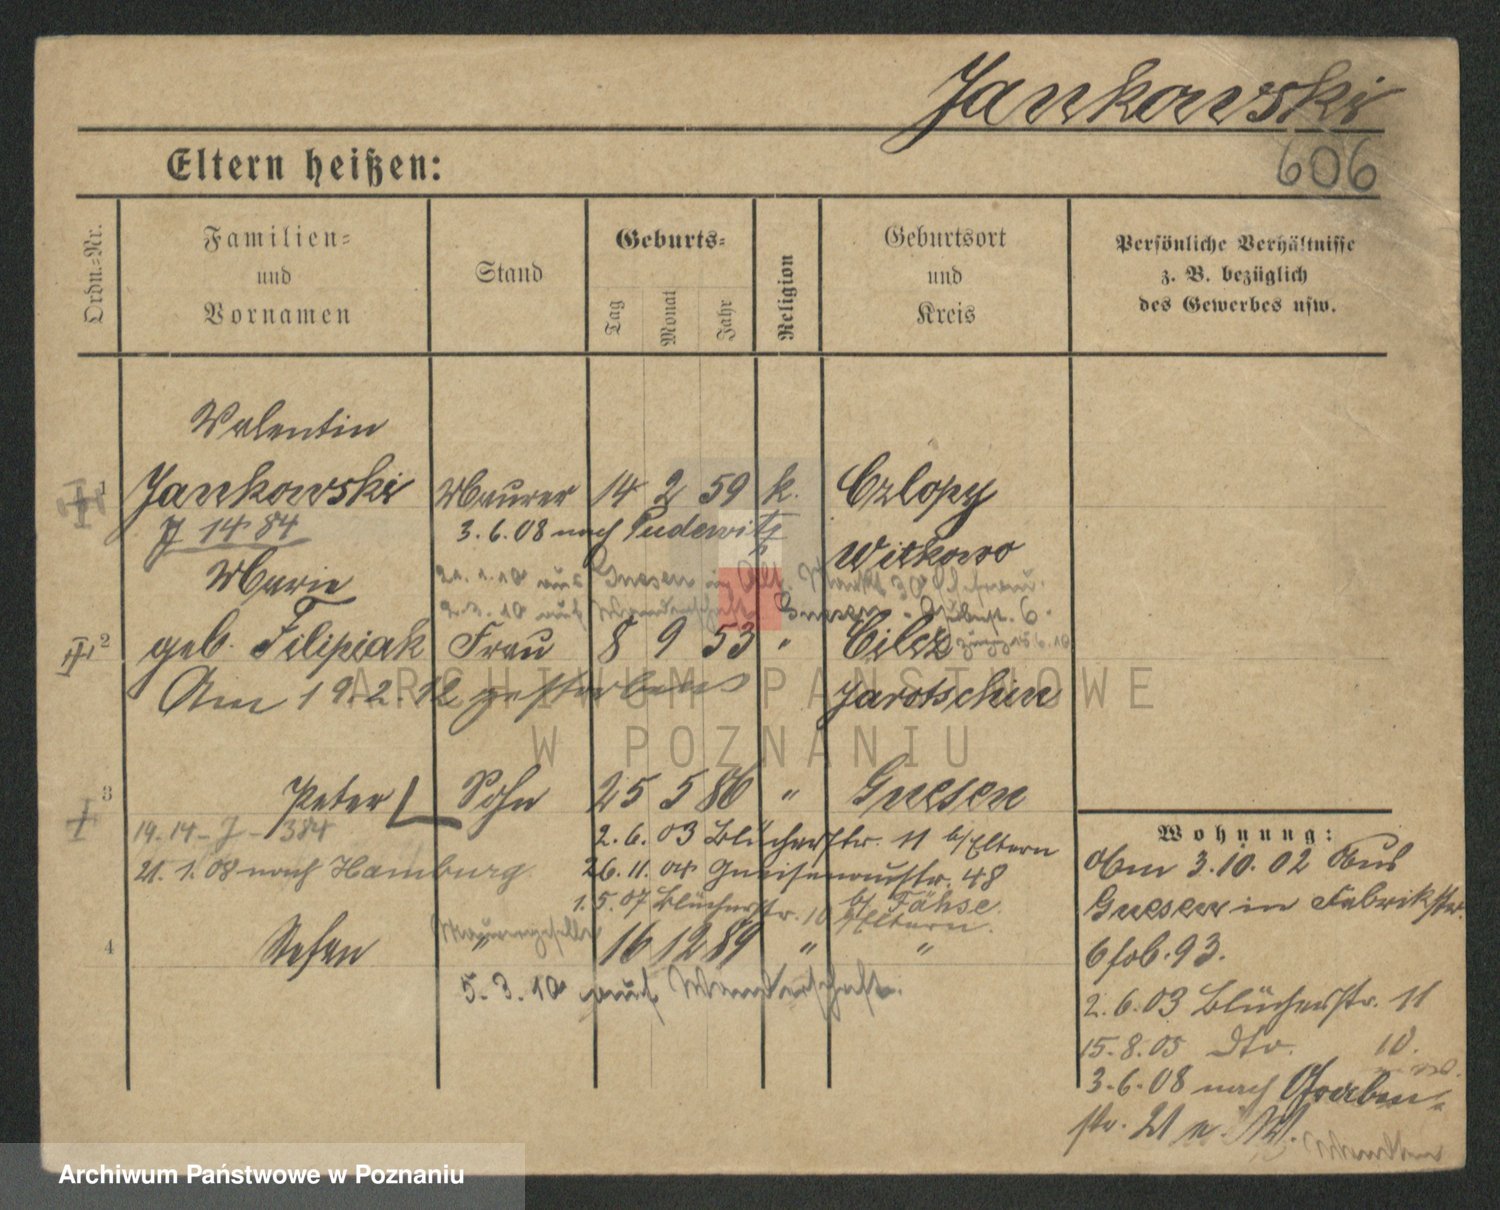 Jankowski
606
Eltern heißen:
Ordn.=Nr.
Familien=
und
Vornamen
Stand
Geburts=
Tag
Monat
Jahr
Religion
Geburtsort
und
Kreis
Persönliche Verhältnisse
z. B. bezüglich
des Gewerbes usw.
Valentin
1 Jankowski Maurer 14 2 59 k. Czlopy
J 14 84
3.6.08 nach Pudewitz
Witkowo
Marie
21.1.10 aus Gnesen
2.3.10 auf Wanderschaft Gnesen
2 geb. Filipiak Frau 8 9 53 " Cilcz
Am 19.2.12 gestorben
Jarotschin
3 Peter Sohn 25 5 86 " Gnesen
14.14 - J - 384
2.6.03 Blücherstr. 11 b/Eltern
21.1.08 nach Hamburg
26.11.04 Gneisenaustr. 48
b/ Fähse
1.5.07 Blücherstr. 10 b/Eltern.
Maurergeselle
4 Stefan " 16 12 89 " "
5.3.10 auf Wanderschaft.
Wohnung:
Am 3.10.02 Aus
Gnesen in Fabrikstr.
2.6.03 Blücherstr. 11
15.8.05 dto. 10.
3.6.08 nach Graben=
str. 21 n. W.
ARCHIWUM PAŃSTWOWE
W POZNANIU
Archiwum Państwowe w Poznaniu